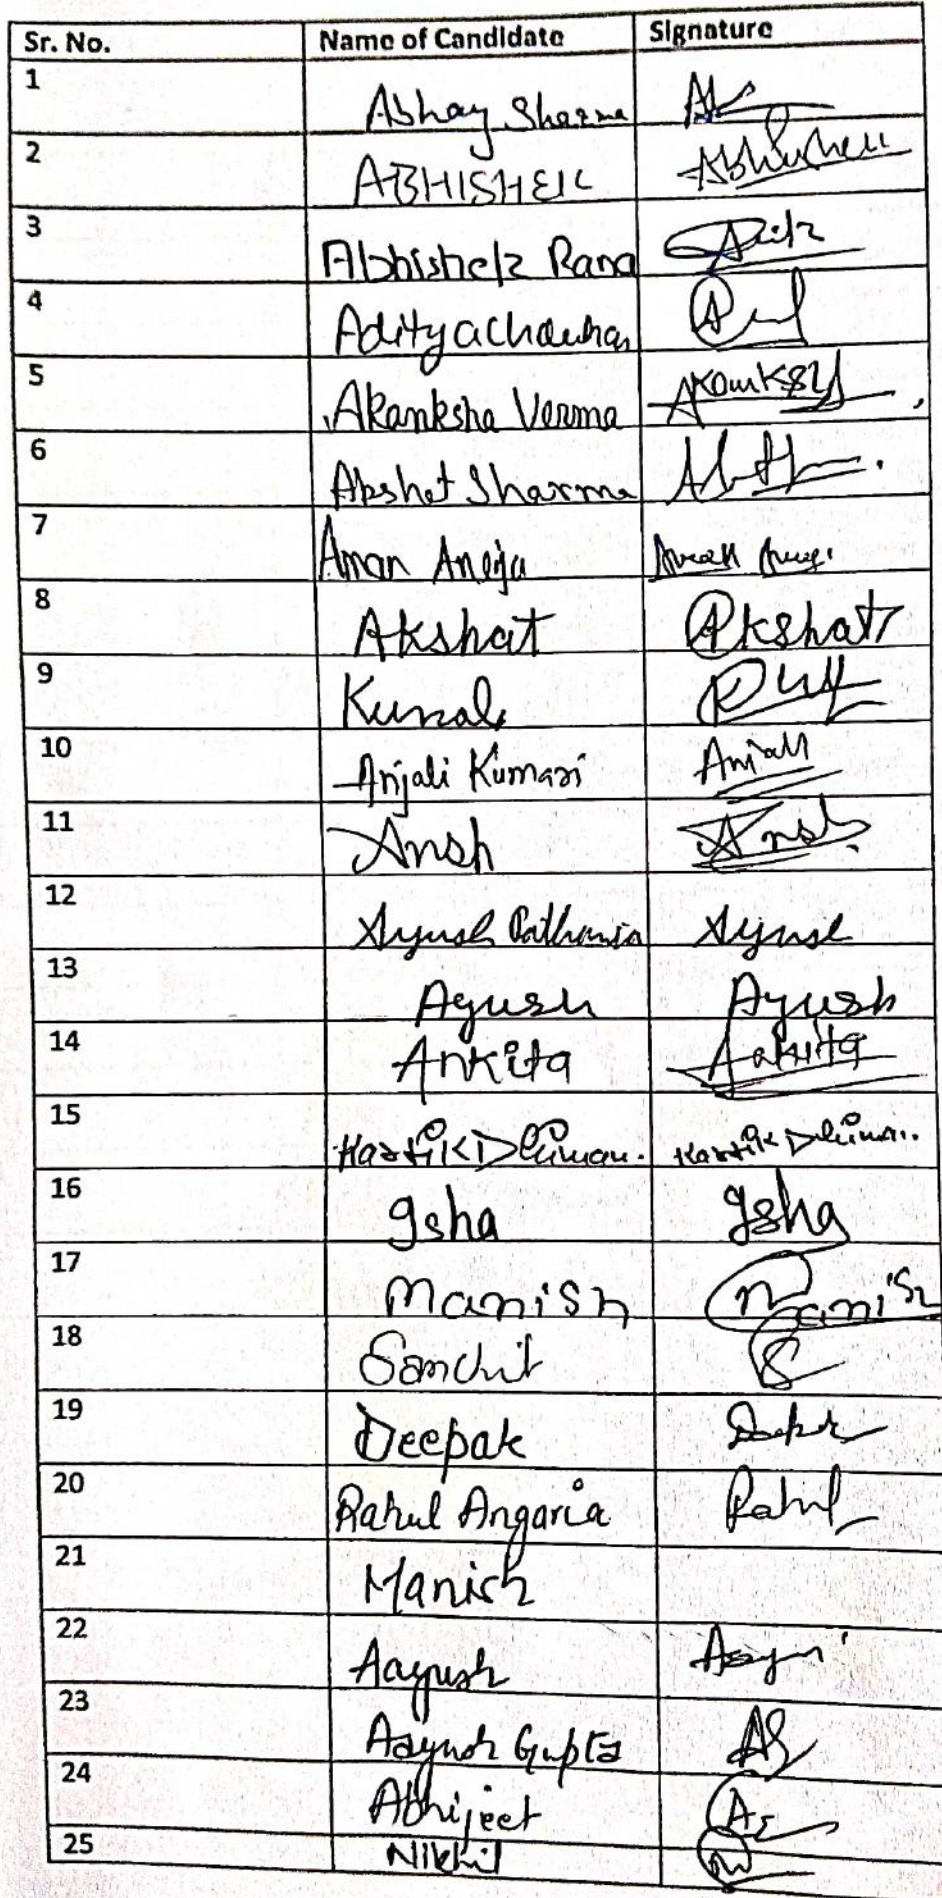 Sr. No. Name of Candidate Signature
1 Abhay Sharma
2 ABHISHEK Abhishek
3 Abhishek Rana
4 Aditya Chauhan
5 Akanksha Verma
6 Akshat Sharma
7 Aman Aneja
8 Akshat Akshat
9 Kunal
10 Anjali Kumari Anjali
11 Ansh Ansh
12 Ayush Pathania Ayush
13 Ayush Ayush
14 Ankita Ankita
15 Kartik Dhiman. Kartik Dhiman.
16 Isha Isha
17 Manish Manish
18 Sanchit S
19 Deepak Deepak
20 Rahul Angaria Rahul
21 Manish
22 Aayush
23 Aayush Gupta AG
24 Abhijeet
25 Nikhil